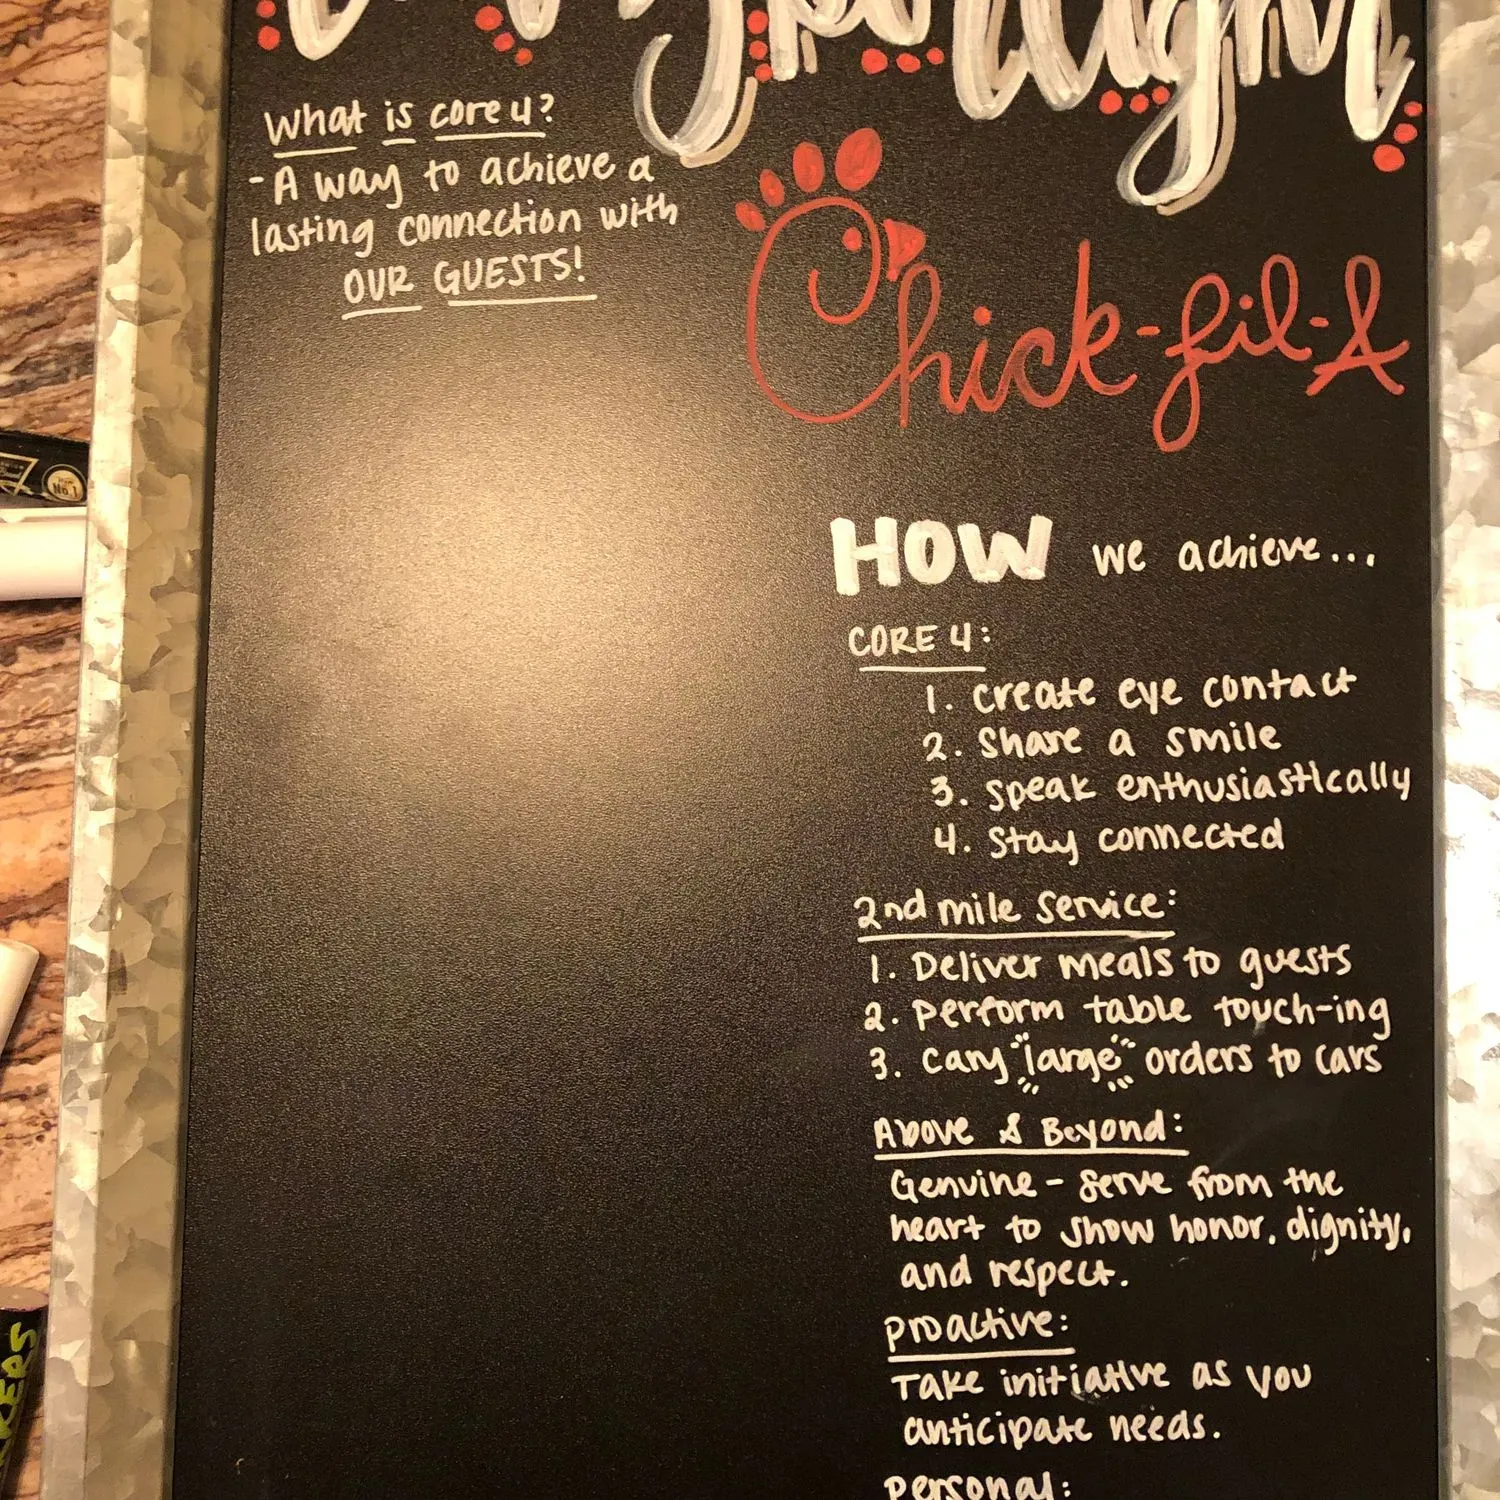 What is core 4?
- A way to achieve a
lasting connection with
OUR GUESTS!
Chick-fil-A
HOW we achieve...
CORE 4:
1. create eye contact
2. share a smile
3. speak enthusiastically
4. stay connected
2nd mile service:
1. Deliver meals to guests
2. perform table touch-ing
3. carry "large" orders to cars
Above & Beyond:
Genuine - serve from the
heart to show honor, dignity,
and respect.
proactive:
Take initiative as you
anticipate needs.
personal:
No.1